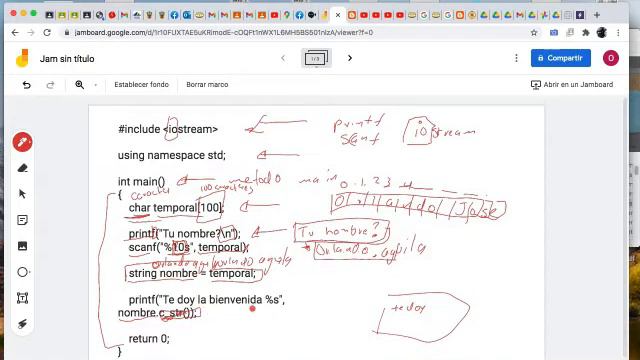 jamboard.google.com/d/1r10FUXTAE5uKRlmodE-cOQFt1nWX1L6MH5BS501nizI/viewer?f=0
Jam sin título
1/3
Compartir
O
Establecer fondo
Borrar marco
Abrir en un Jamboard
#include <iostream>
printf
scanf
iostream
using namespace std;
int main()
metodo main
0 1 2 3 4
{
caracter
100 caracteres
char temporal[100];
O r l a n d o J o s e
printf("Tu nombre?\n");
Tu nombre?
scanf("%10s", temporal);
Orlando aguila
string nombre = temporal;
printf("Te doy la bienvenida %s",
te doy
nombre.c_str());
return 0;
}